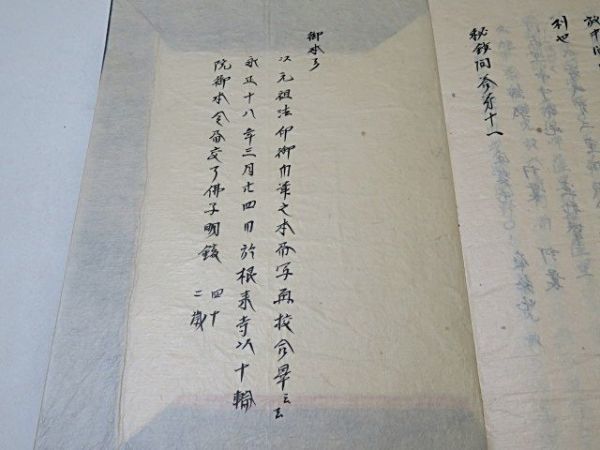 利也
秘鈔問答第十一
御本了
次元祖法印御自筆之本而写再挍合畢云云
永正十八年三月廿四日於根来寺以十輪
院御本令書交了佛子明鍐
四十
二歳